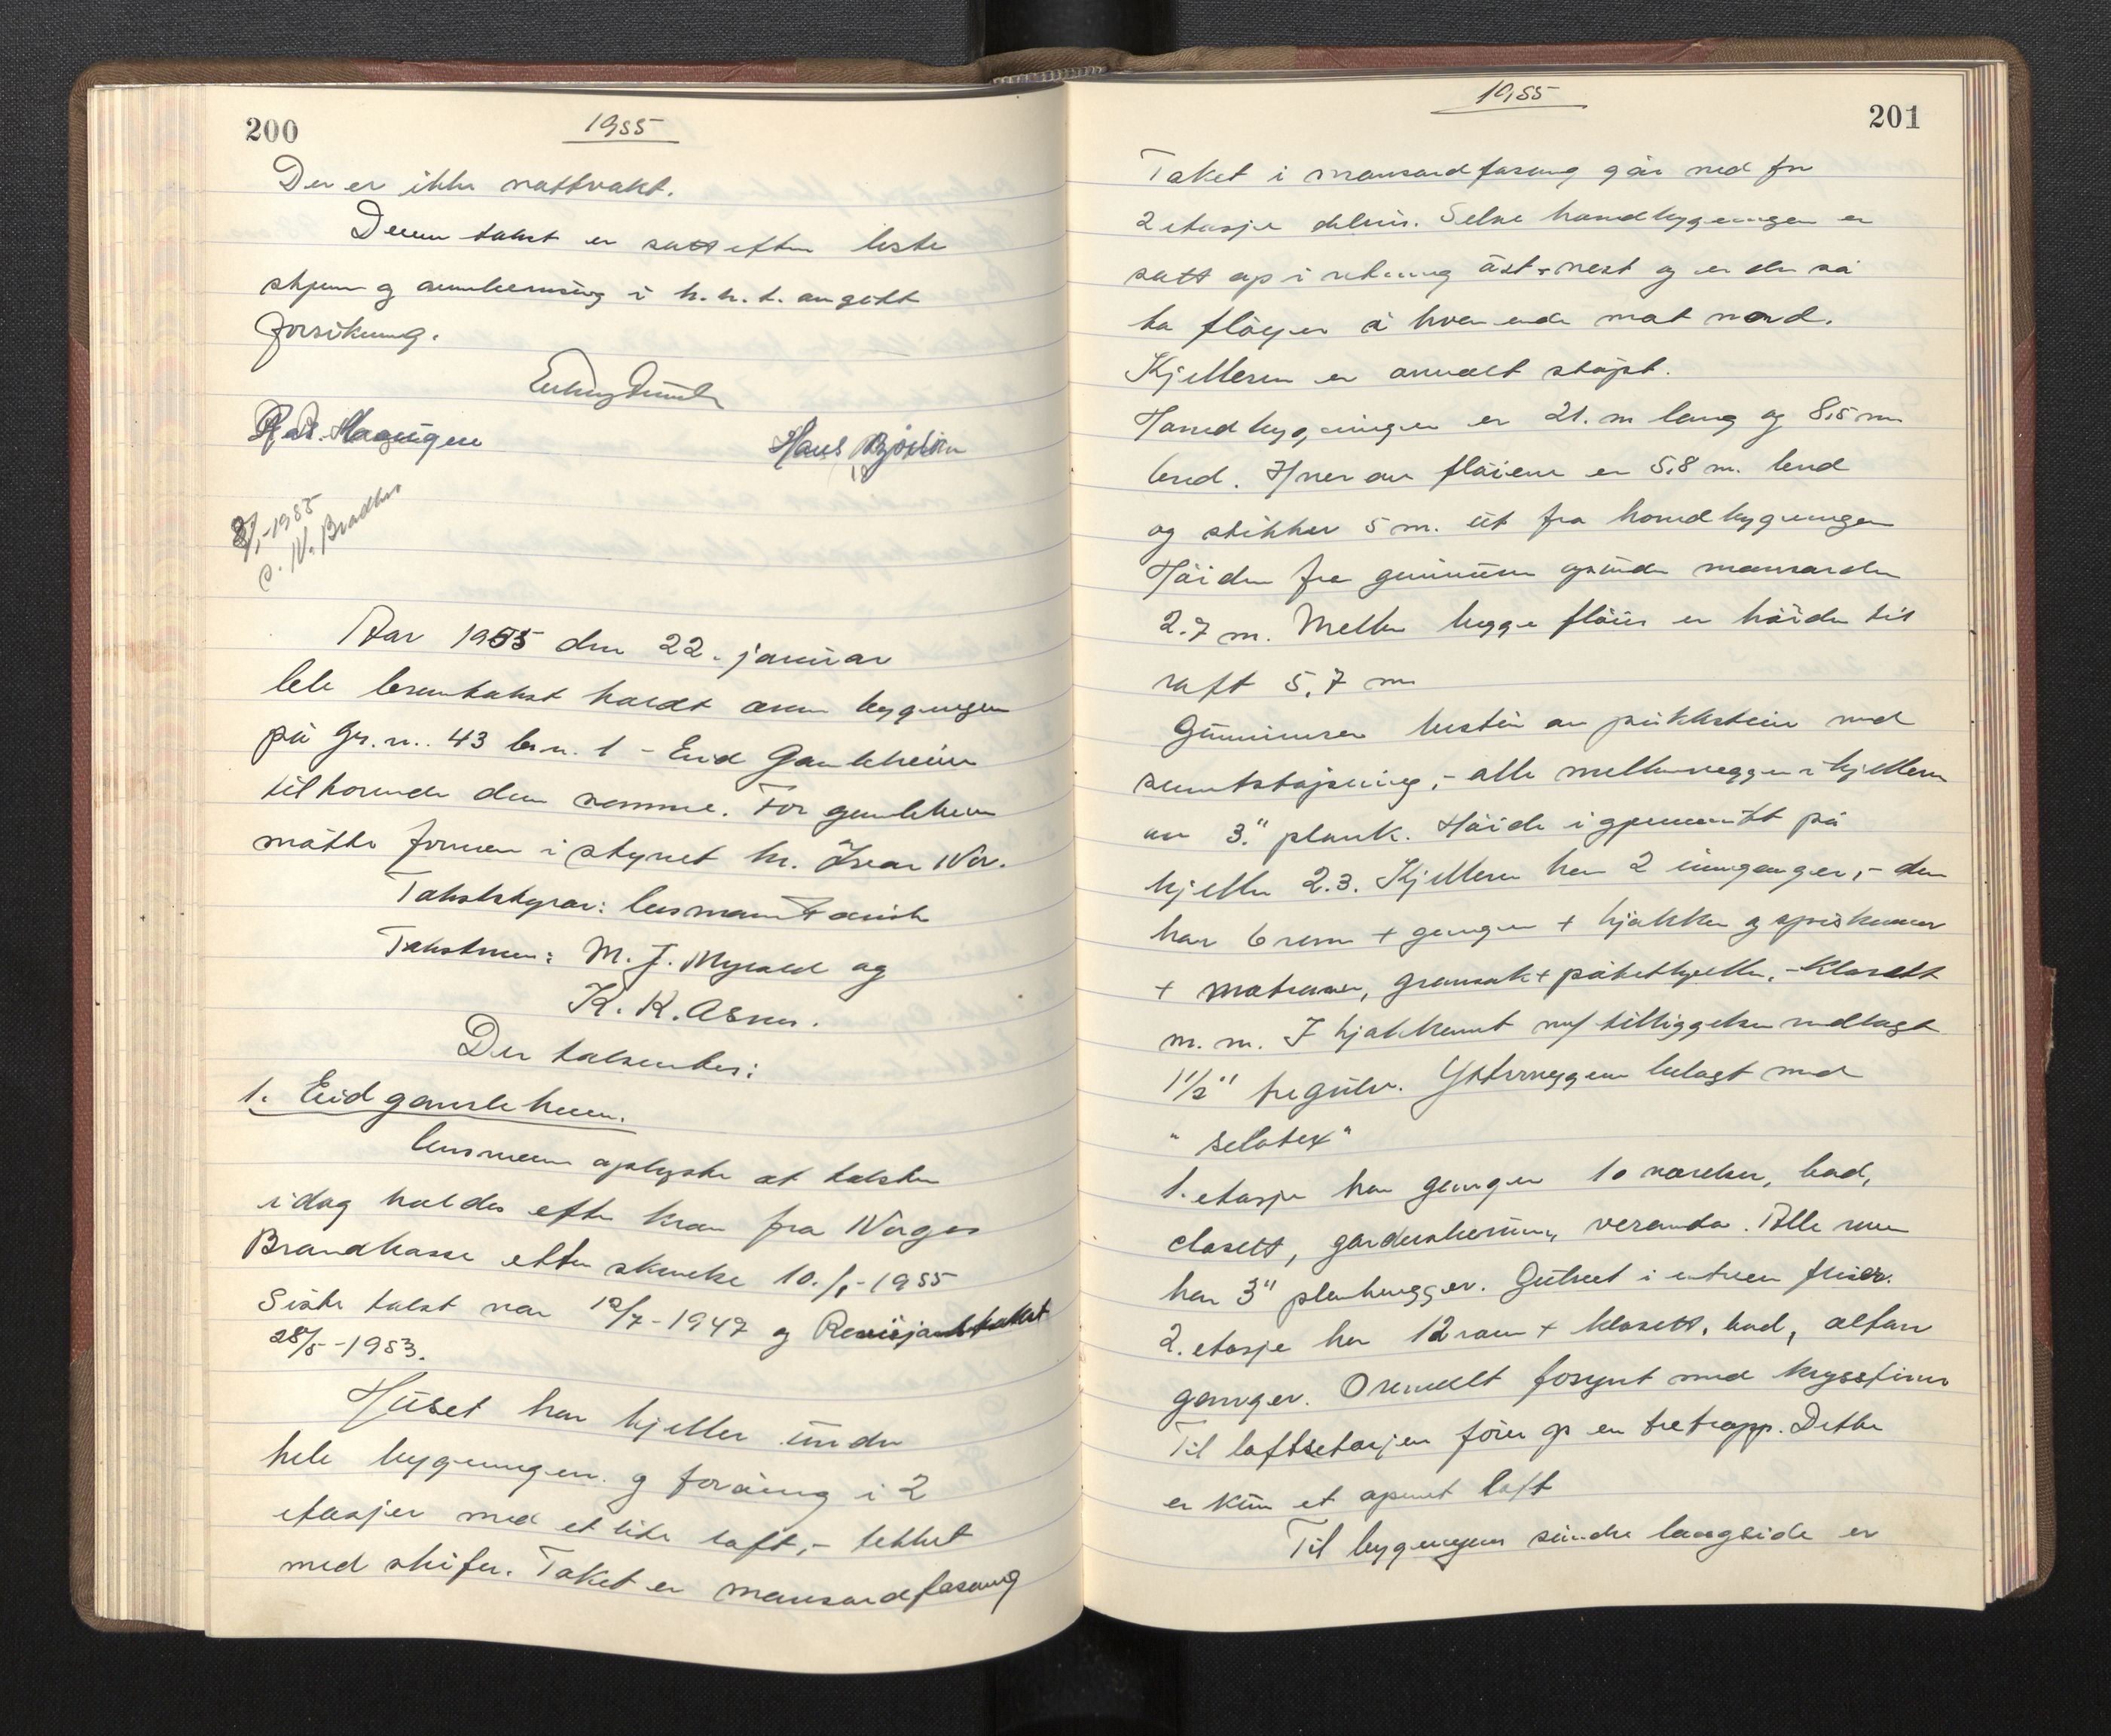 200
1955
Der er ikke nattvakt.
Denne takst er satt efter beste
skjønn og anmerkning i h.h.t. angitt
forsikring.
Hans
8/1-1955
C. N. Bradkas
Aar 1955 den 22. januar
ble branntakst holdt over bygningen
på gr.n. 43 br.n. 1 - Eid Gamleheim
tilhørende den samme. For gamleheim
møtte formen i styret hr. Ivar Nor.
Takststyrar: lensmann
Takstmenn: M. J. Myvold og
K. K. Asnes.
Der takseredes:
1. Eid gamleheim.
Lensmannen oplyste at taksten
idag holdes efter krav fra Norges
Brandkasse efter skrivelse 10./1-1955
Siste takst var 12/7-1947 og Revisjonstakst
28/5-1953.
Huset har kjeller under
hele bygningen og forøvrig i 2
etasjer med et lite loft,- tekket
med skifer. Taket er mansardfasong
1955
201
Taket i mansardfasong går ned for
2 etasje delvis. Selve hovedbygningen er
satt op i retning øst-vest og er der så
to fløyer i hver ende mot nord.
Kjelleren er overalt støpt.
Hovedbygningen er 21. m lang og 8,5 m
bred. Hver av fløiene er 5,8 m. bred
og stikker 5 m. ut fra hovedbygningen
Høiden fra grunnmur op under mansarden
2.7 m. Mellem begge fløier er høiden til
raft 5,7 m
Grunnmuren består av pukkstein med
sementstøpning,- alle mellemvegger i kjelleren
av 3" plank. Høide i gjennomsnitt på
kjeller 2.3. Kjelleren har 2 innganger,- den
har 6 rom + ganger + kjøkken og spiskammer
+ matrom, grønsak + potetkjeller,- Klosett
m.m. I kjøkkenet m/ tilliggelser nedlagt
1 1/2" tregulv. Ytterveggene belagt med
"Selotex"
1. etasje har ganger 10 værelser, bad,
closett, garderoberum, veranda. Alle rum
har 3" plankvegger. Gulvet i entreen fliser.
2. etasje har 12 rom + klosett, bad, altan
ganger. Overalt forsynt med kryssfiner
Til loftsetasjen fører op en tretrapp. Dette
er kun et åpent loft
Til bygningens søndre langside er